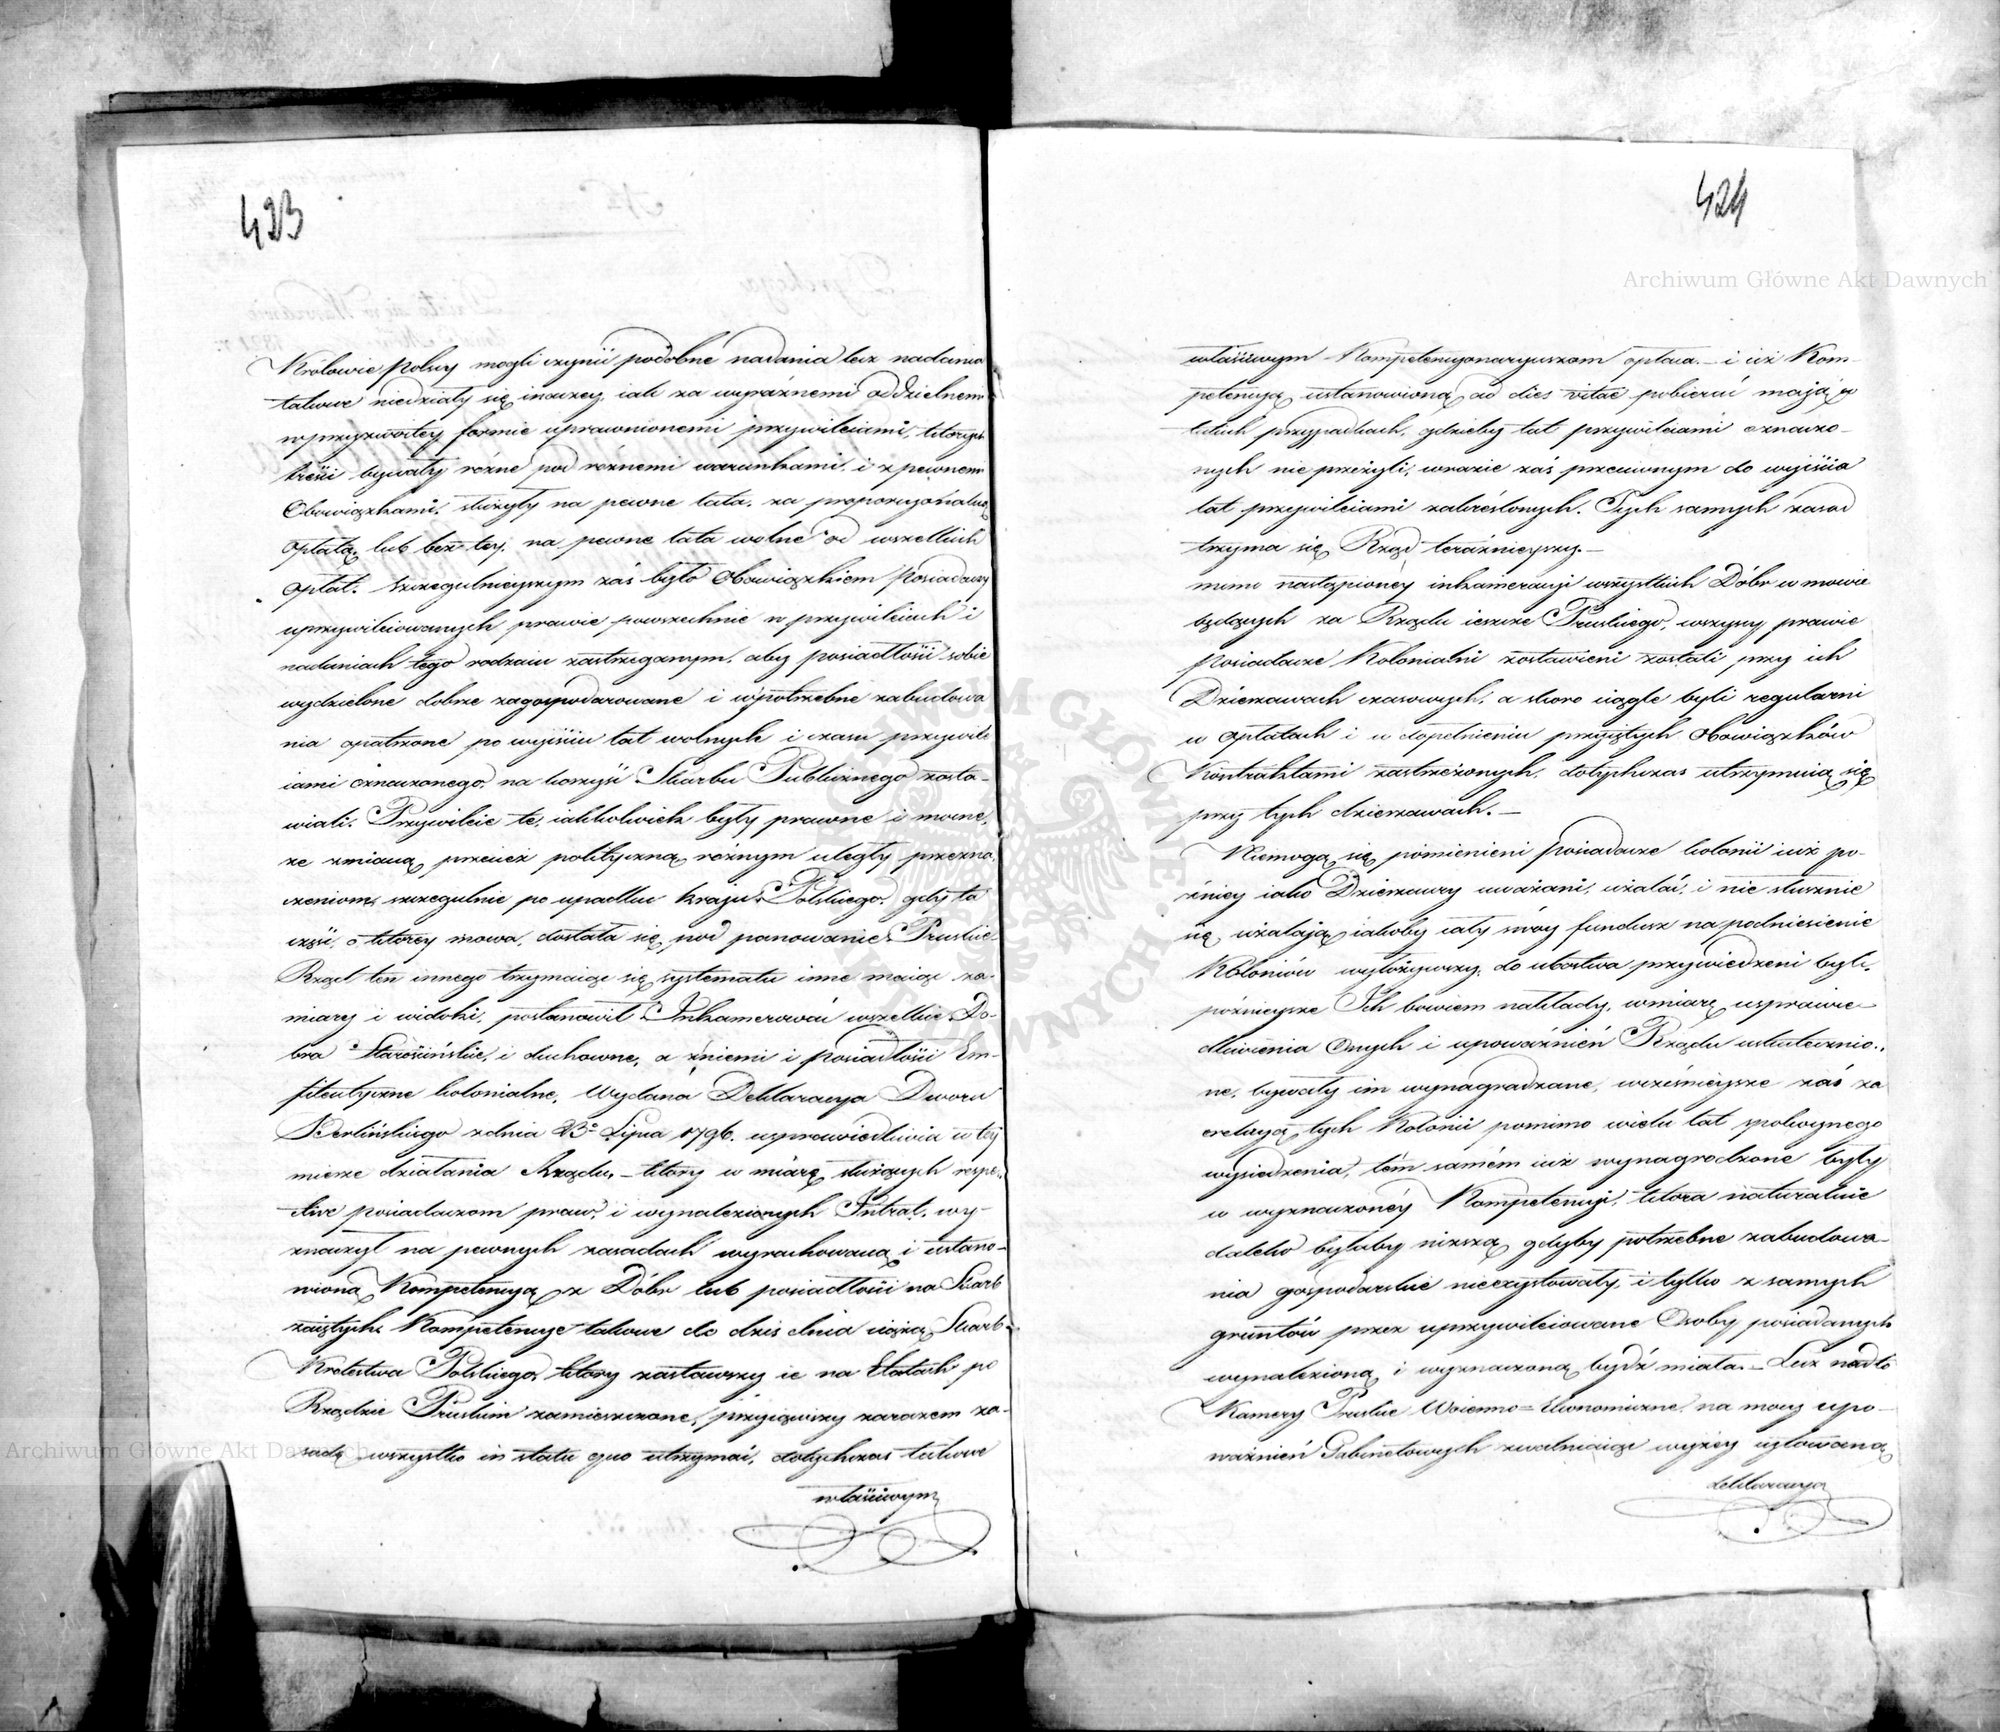 423
Królowie Polscy mogli czynić podobne nadania lecz nadania
takowe niedziały się inaczey, iak za wyraźnemi oddzielnemi
w przyzwoitey formie uprawnionemi przywileiami, których
treści bywały różne pod różnemi warunkami, i z pewnemi
Obowiązkami, służyły na pewne lata, za proporcyonalną
opłatą, lub bez tey, na pewne lata wolne od wszelkich
opłat. Szczegulnieyszym zaś było Obowiązkiem Posiadaczy
uprzywileiowanych prawie powszechnie w przywileiach i
nadaniach tego rodzaiu zastrzeganym, aby posiadłości sobie
wydzielone dobrze zagospodarowane i w potrzebne zabudowa
nia opatrzone po wyiściu lat wolnych i czasu przywile
iami oznaczonego, na korzyść Skarbu Publicznego zosta-
wiali. Przywileie te, iakkolwiek były prawne i mocne,
ze zmianą przecież polityczną różnym uległy przezna
czeniom, szczegulnie po upadku Kraju Polskiego, gdy ta
część, o którey mowa, dostała się pod panowanie Pruskie
Rząd ten innego trzymaiąc się systematu inne maiąc za-
miary i widoki, postanowił Inkamerować wszelkie Do-
bra Starościńskie, i duchowne, a zniemi i Posiadłości Em-
fiteutyczne kolonialne, Wydana Deklaracya Dworu
Berlińskiego z dnia 23º Lipca 1796. usprawiedliwia w tey
mierze działania Rządu, – który w miarę służących respe-
ctive posiadaczom praw, i wynalezionych Intrat, wy-
znaczył na pewnych zasadach wyrachowaną i ustano-
wioną Kompetencyą z Dóbr lub posiadłości na Skarb
zaiętych. Kompetencye takowe do dziś dnia ciążą Skarb
Królestwa Polskiego, który zastawszy ie na Etatach po
Rządzie Pruskim zamieszczone, przyiąwszy zarazem za-
sadę wszystko in statu quo utrzymać, dotychczas takowe
właściwym
424
właściwym Kompetencyonaryuszom opłaca. – i iż Kom-
petencyą ustanowioną ad dies vitae pobierać mają w
takich przypadkach, gdzieby lat przywileiami oznaczo-
nych nie przeżyli, w razie zaś przeciwnym do wyiścia
lat przywileiami zakreślonych. Tych samych zasad
trzyma się Rząd teraźnieyszy. –
mimo nastąpioney inkameracyi wszystkich Dóbr w mowie
będących za Rządu ieszcze Pruskiego, wszyscy prawie
Posiadacze Kolonialni zostawieni zostali przy ich
Dzierżawach czasowych, a skoro ciągle byli regularni
w opłatach i w dopełnieniu przyiętych Obowiązków
Kontraktami zastrzeżonych, dotychczas utrzymuią się
przy tych dzierżawach. –
Niemogą się pomienieni posiadacze kolonii iuż po-
źniey iako Dzierżawcy uważani, użalać, i nie słusznie
się użalają iakoby cały swóy fundusz na podniesienie
Koloniów wyłożywszy, do ubóstwa przywiedzeni byli,
późnieysze Ich bowiem nakłady, w miarę usprawie-
dliwienia Onych i upoważnień Rządu uskutecznio-
ne, bywały im wynagradzane, wcześnieysze zaś za
erekcyą tych Kolonii pomimo wielu lat spokoynego
wysiedzenia, tém samém iuż wynagrodzone były
w wyznaczonéy Kompetencyi, która naturalnie
daleko byłaby niższą, gdyby potrzebne zabudowa-
nia gospodarskie nieexystowały, i tylko z samych
gruntów przez uprzywileiowane Osoby posiadanych
wynalezioną i wyznaczoną bydź miała. – Lecz nadto
Kamery Pruskie Woienno=Ekonomiczne, na mocy upo-
ważnień Gabinetowych zwalniaiąc wyżey cytowaną
deklaracyą
Archiwum Główne Akt Dawnych
Archiwum Główne Akt Dawnych
ARCHIWUM GŁÓWNE AKT DAWNYCH